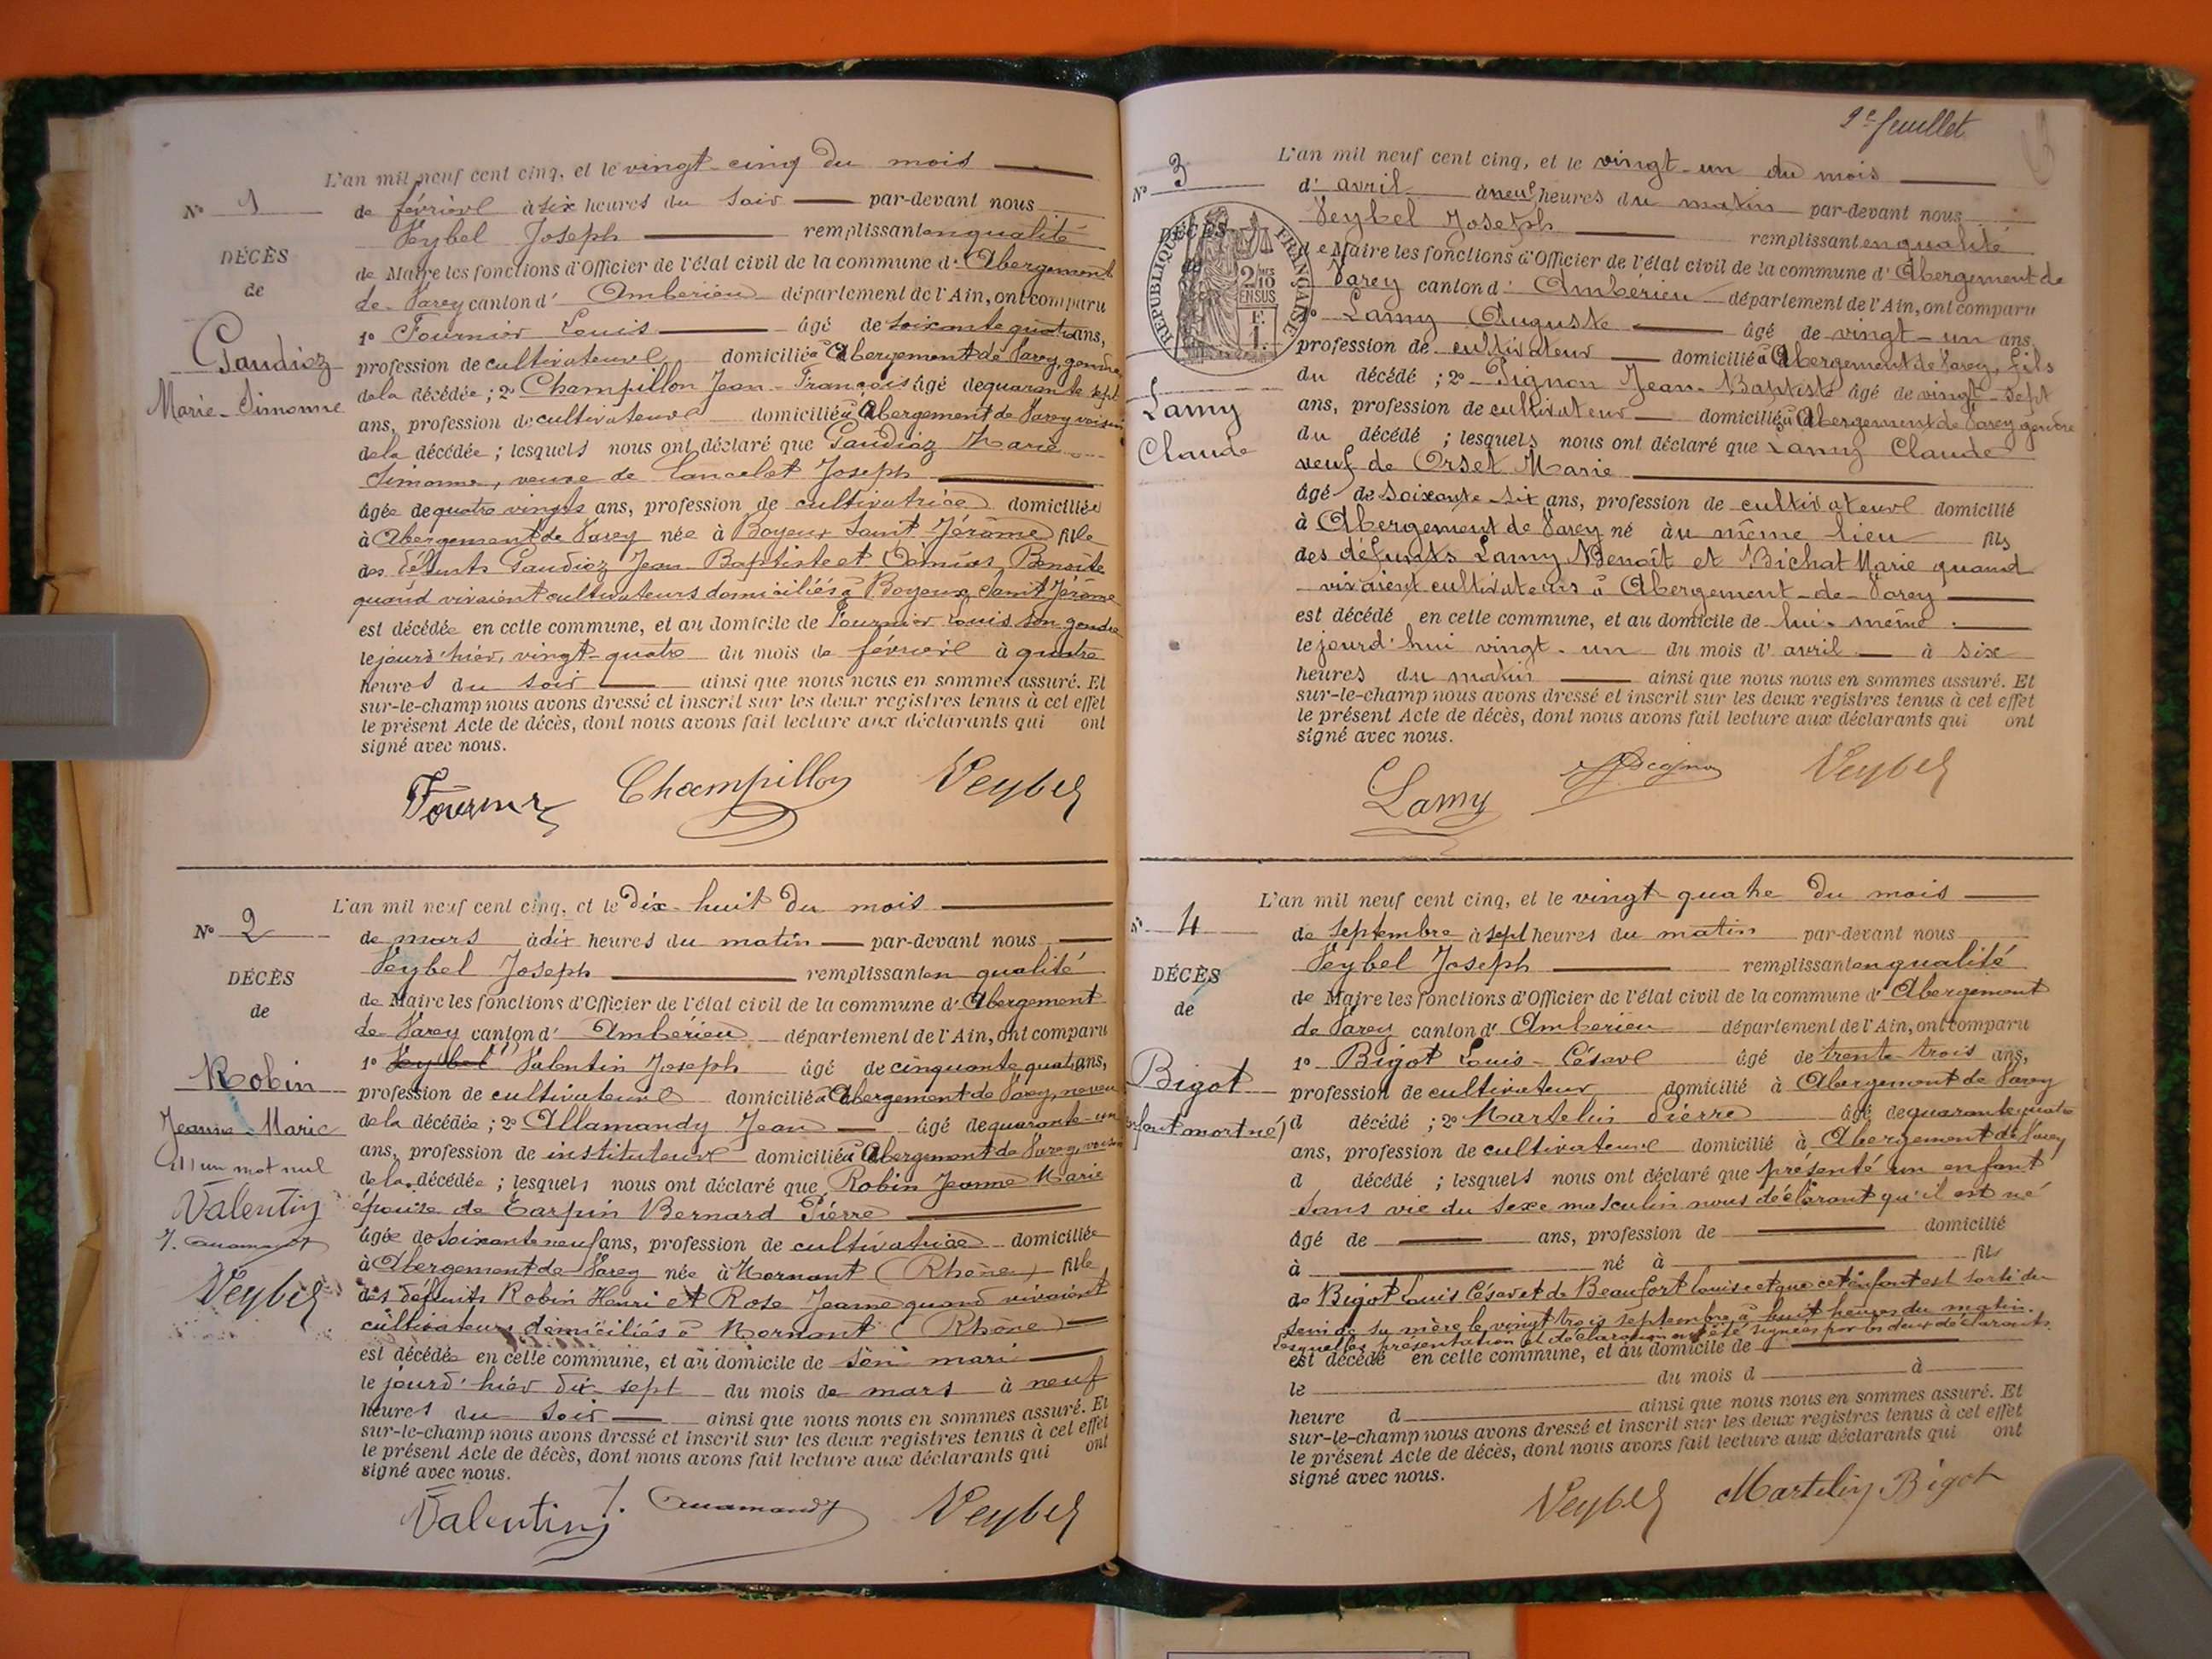 L'an mil neuf cent cinq, et le vingt-cinq du mois
Nº 1
de février à six heures du soir par-devant nous
Veybel Joseph remplissant en qualité
DÉCÈS
de Maire les fonctions d'Officier de l'état civil de la commune d'Abergement
de
de Varey canton d'Ambérieu département de l'Ain, ont comparu
1º Fournier Louis âgé de soixante quatre ans,
Gaudiez
profession de cultivateur domicilié à Abergement de Varey, gendre
Marie-Simonne
de la décédée ; 2º Champillon Jean-François âgé de quarante sept
ans, profession de cultivateur domicilié à Abergement de Varey voisin
de la décédée ; lesquels nous ont déclaré que Gaudiez Marie
Simonne, veuve de Lancelet Joseph
âgée de quatre vingts ans, profession de cultivatrice domiciliée
à Abergement de Varey née à Boyeux Saint Jérôme fille
des défunts Gaudiez Jean Baptiste et Benoîte
quand vivaient cultivateurs domiciliés à Boyeux Saint Jérôme
est décédée en cette commune, et au domicile de Fournier Louis son gendre
le jourd'hier, vingt-quatre du mois de février à quatre
heures du soir ainsi que nous nous en sommes assuré. Et
sur-le-champ nous avons dressé et inscrit sur les deux registres tenus à cet effet
le présent Acte de décès, dont nous avons fait lecture aux déclarants qui ont
signé avec nous.
Fournier Champillon Veybel
L'an mil neuf cent cinq, et le dix-huit du mois
Nº 2
de mars à dix heures du matin par-devant nous
Veybel Joseph remplissant en qualité
DÉCÈS
de Maire les fonctions d'Officier de l'état civil de la commune d'Abergement
de
de Varey canton d'Ambérieu département de l'Ain, ont comparu
1º Veybel (1) Valentin Joseph âgé de cinquante quatre ans,
Robin
profession de cultivateur domicilié à Abergement de Varey, neveu
Jeanne-Marie
de la décédée ; 2º Allamandy Jean âgé de quarante-un
(1) un mot nul
ans, profession de instituteur domicilié à Abergement de Varey, voisin
Valentin
de la décédée ; lesquels nous ont déclaré que Robin Jeanne Marie
épouse de Tarpin Bernard Pierre
J. Allamandy
âgée de soixante neuf ans, profession de cultivatrice domiciliée
Veybel
à Abergement de Varey née à Mornant (Rhône) fille
des défunts Robin Henri et Rose Jeanne quand vivaient
cultivateurs domiciliés à Mornant (Rhône)
est décédée en cette commune, et au domicile de son mari
le jourd'hier dix-sept du mois de mars à neuf
heures du soir ainsi que nous nous en sommes assuré. Et
sur-le-champ nous avons dressé et inscrit sur les deux registres tenus à cet effet
le présent Acte de décès, dont nous avons fait lecture aux déclarants qui ont
signé avec nous.
Valentin J. Allamandy Veybel
2e feuillet
L'an mil neuf cent cinq, et le vingt-un du mois
Nº 3
d'avril à neuf heures du matin par-devant nous
Veybel Joseph remplissant en qualité
DÉCÈS
de
RÉPUBLIQUE FRANÇAISE
2/10 EN SUS
F. 1.
de Maire les fonctions d'Officier de l'état civil de la commune d'Abergement de
Varey canton d'Ambérieu département de l'Ain, ont comparu
1º Lamy Auguste âgé de vingt-un ans
profession de cultivateur domicilié à Abergement de Varey, fils
du décédé ; 2º Pignon Jean-Baptiste âgé de vingt-sept
Lamy
ans, profession de cultivateur domicilié à Abergement de Varey gendre
Claude
du décédé ; lesquels nous ont déclaré que Lamy Claude
veuf de Orset Marie
âgé de soixante-six ans, profession de cultivateur domicilié
à Abergement de Varey né à au même lieu fils
des défunts Lamy Benoît et Bichat Marie quand
vivaient cultivateurs à Abergement-de-Varey
est décédé en cette commune, et au domicile de lui-même
le jourd'hui vingt-un du mois d'avril à six
heures du matin ainsi que nous nous en sommes assuré. Et
sur-le-champ nous avons dressé et inscrit sur les deux registres tenus à cet effet
le présent Acte de décès, dont nous avons fait lecture aux déclarants qui ont
signé avec nous.
Lamy Pignon Veybel
L'an mil neuf cent cinq, et le vingt quatre du mois
Nº 4
de septembre à sept heures du matin par-devant nous
Veybel Joseph remplissant en qualité
DÉCÈS
de Maire les fonctions d'Officier de l'état civil de la commune d'Abergement
de
de Varey canton d'Ambérieu département de l'Ain, ont comparu
1º Bigot Louis-César âgé de trente-trois ans,
Bigot
profession de cultivateur domicilié à Abergement de Varey
(enfant mort né)
d décédé ; 2º Martelin Pierre âgé de quarante quatre
ans, profession de cultivateur domicilié à Abergement de Varey
d décédé ; lesquels nous ont déclaré que présenté un enfant
sans vie du sexe masculin nous déclarant qu'il est né
âgé de ans, profession de domicilié
à né à fils
de Bigot Louis César et de Beaufort Louise et que cet enfant est sorti du
sein de sa mère le vingt trois septembre à huit heures du matin.
lesquelles présentation et déclaration ont été signées par les deux déclarants
est décédé en cette commune, et au domicile de
le du mois d à
heure d ainsi que nous nous en sommes assuré. Et
sur-le-champ nous avons dressé et inscrit sur les deux registres tenus à cet effet
le présent Acte de décès, dont nous avons fait lecture aux déclarants qui ont
signé avec nous.
Veybel Martelin Bigot